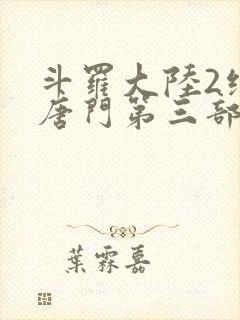 斗羅大陸2
唐門第三部
葉霖嘉